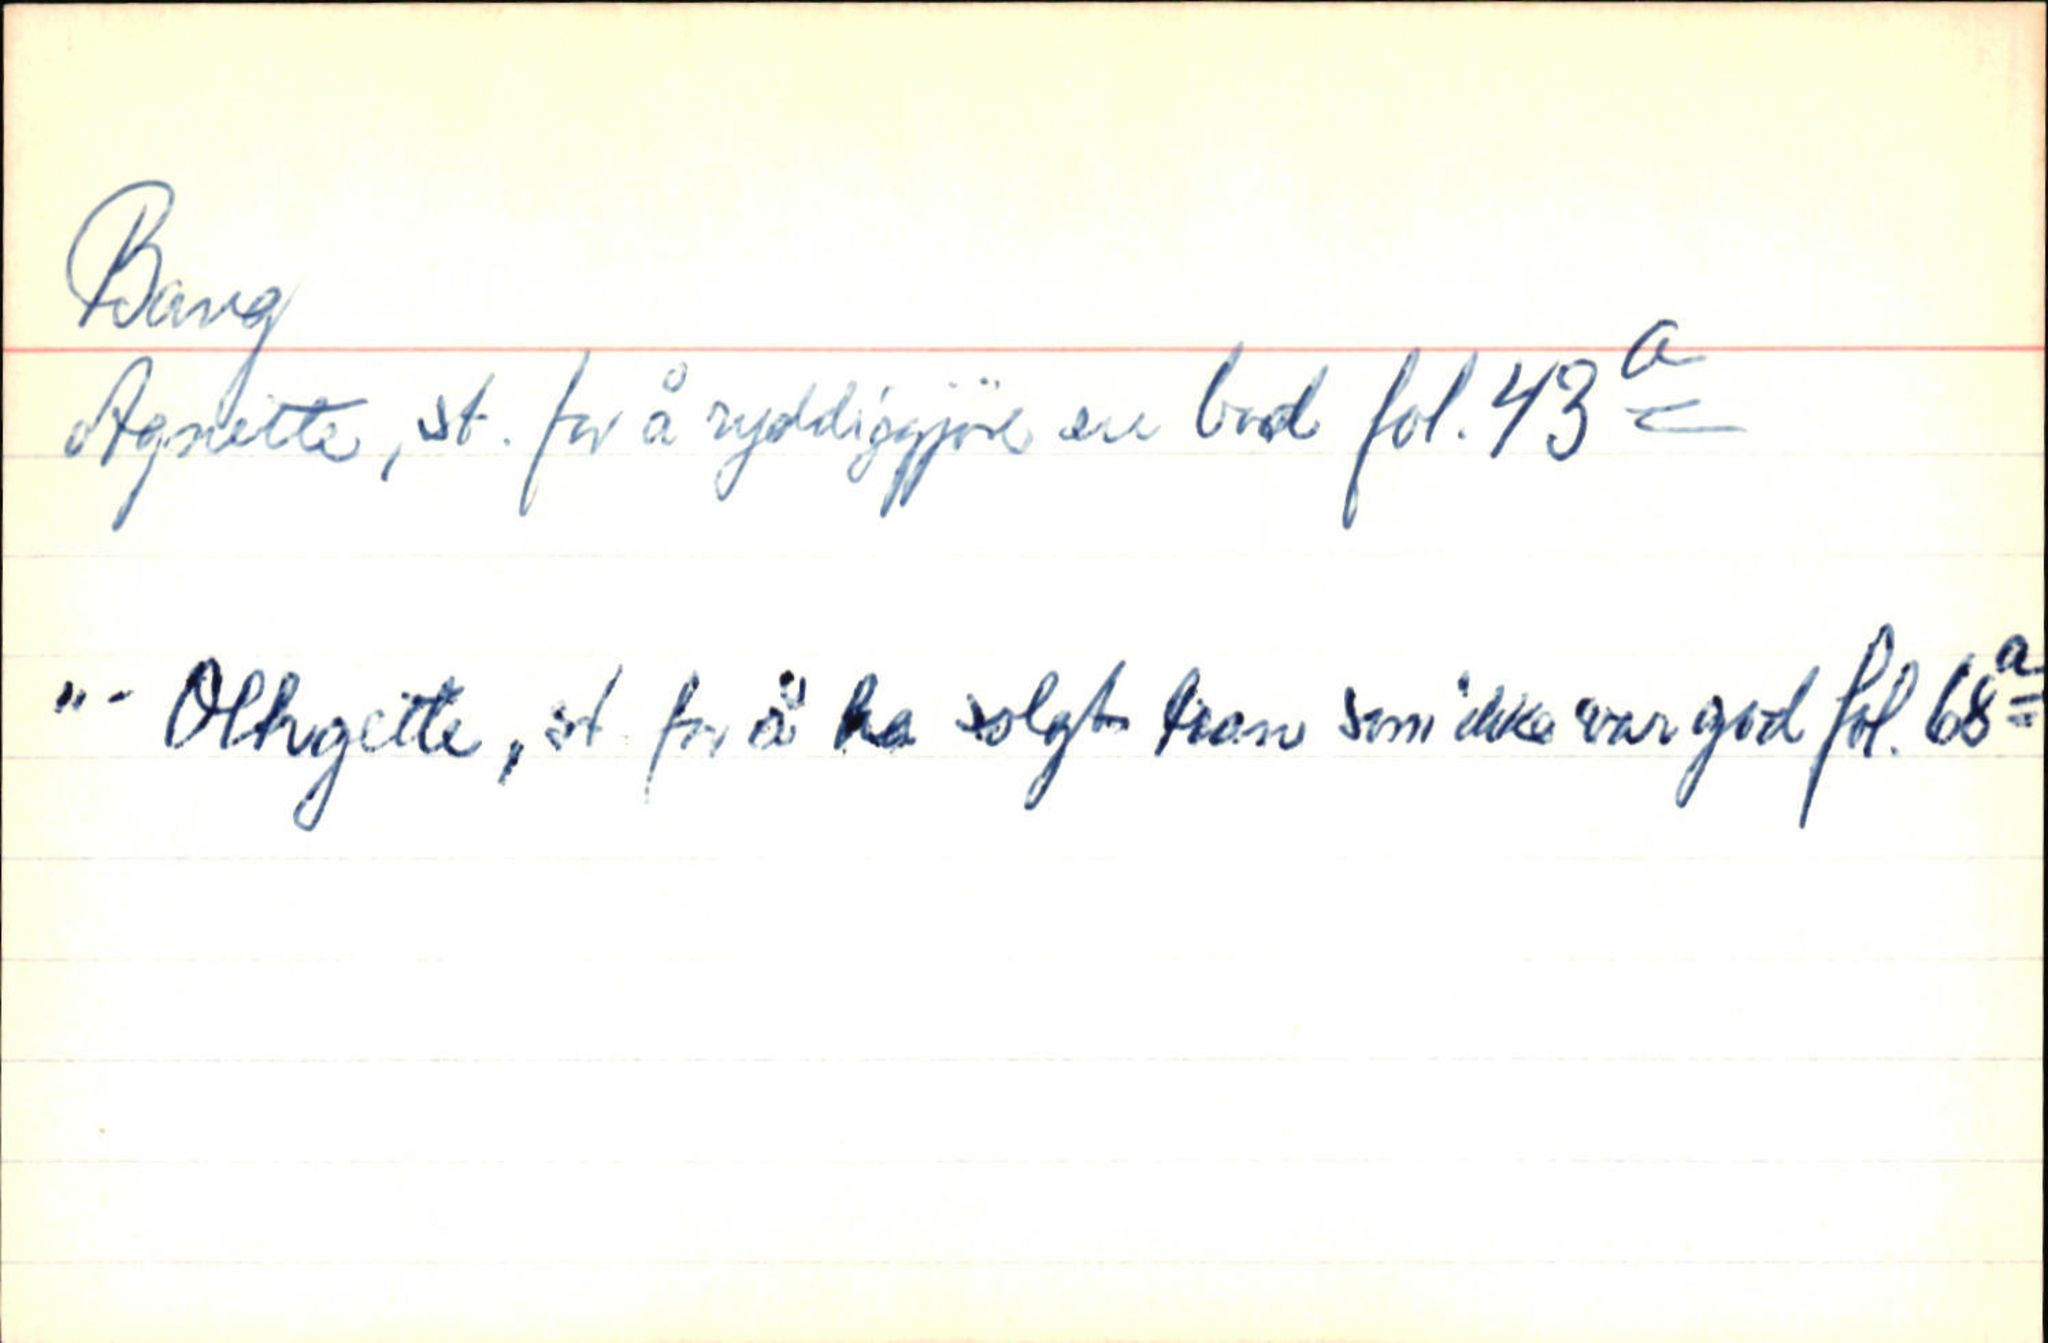 Bang
Agnette, st. for å ryddiggjöre en bod fol. 43 a
"- Olhgitte, st. for å ha solgt tran som ikke var god fol. 68 a